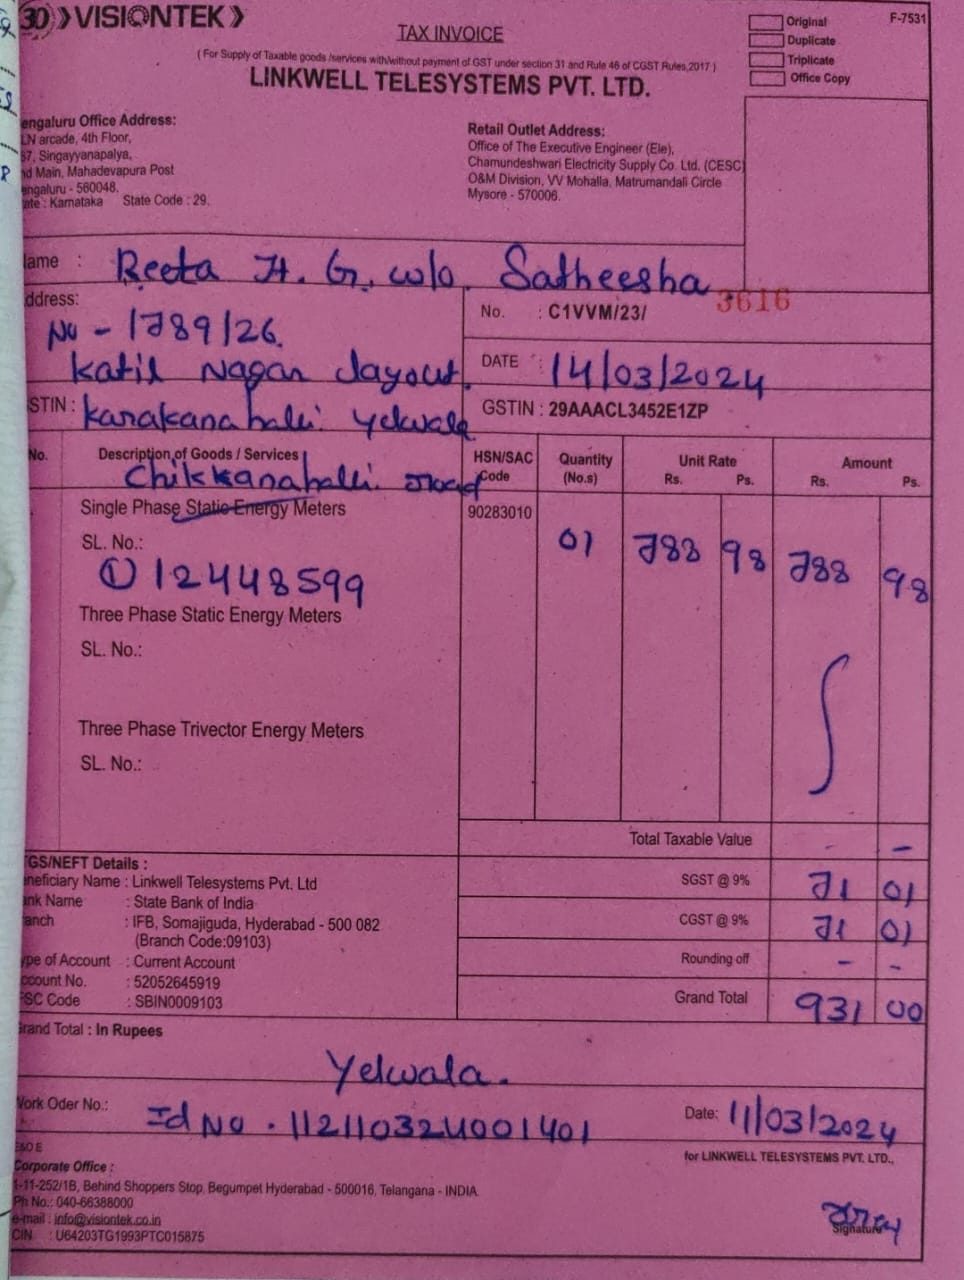 VISIONTEK
TAX INVOICE
Original
Duplicate
Triplicate
Office Copy
F-7531
( For Supply of Taxable goods /services with/without payment of GST under section 31 and Rule 46 of CGST Rules,2017 )
LINKWELL TELESYSTEMS PVT. LTD.
engaluru Office Address:
LN arcade, 4th Floor,
67, Singayyanapalya,
nd Main, Mahadevapura Post
engaluru - 560048.
ate : Karnataka State Code : 29.
Retail Outlet Address:
Office of The Executive Engineer (Ele),
Chamundeshwari Electricity Supply Co. Ltd. (CESC)
O&M Division, VV Mohalla, Matrumandali Circle
Mysore - 570006.
ame : Reeta H. G. w/o. Satheesha
ddress:
No - 1789/26.
Katil Nagar Layout.
STIN : Karakanahalli Yelwala
Chikkanahalli road
No. : C1VVM/23/ 3616
DATE : 14/03/2024
GSTIN : 29AAACL3452E1ZP
No. Description of Goods / Services HSN/SAC Code Quantity (No.s) Unit Rate Rs. Ps. Amount Rs. Ps.
Single Phase Static Energy Meters 90283010 01 788 98 788 98
SL. No.:
① 12448599
Three Phase Static Energy Meters
SL. No.:
Three Phase Trivector Energy Meters
SL. No.:
Total Taxable Value - -
SGST @ 9% 71 01
CGST @ 9% 71 01
Rounding off - -
Grand Total 931 00
TGS/NEFT Details :
eneficiary Name : Linkwell Telesystems Pvt. Ltd
ank Name : State Bank of India
anch : IFB, Somajiguda, Hyderabad - 500 082
(Branch Code:09103)
ype of Account : Current Account
ccount No. : 52052645919
FSC Code : SBIN0009103
Grand Total : In Rupees
Yelwala.
Work Oder No.: Id No. 112110324001401 Date: 11/03/2024
E&O E
for LINKWELL TELESYSTEMS PVT. LTD.,
Corporate Office :
1-11-252/1B, Behind Shoppers Stop, Begumpet Hyderabad - 500016, Telangana - INDIA.
Ph No.: 040-66388000
e-mail : info@visiontek.co.in
CIN : U64203TG1993PTC015875
Signature